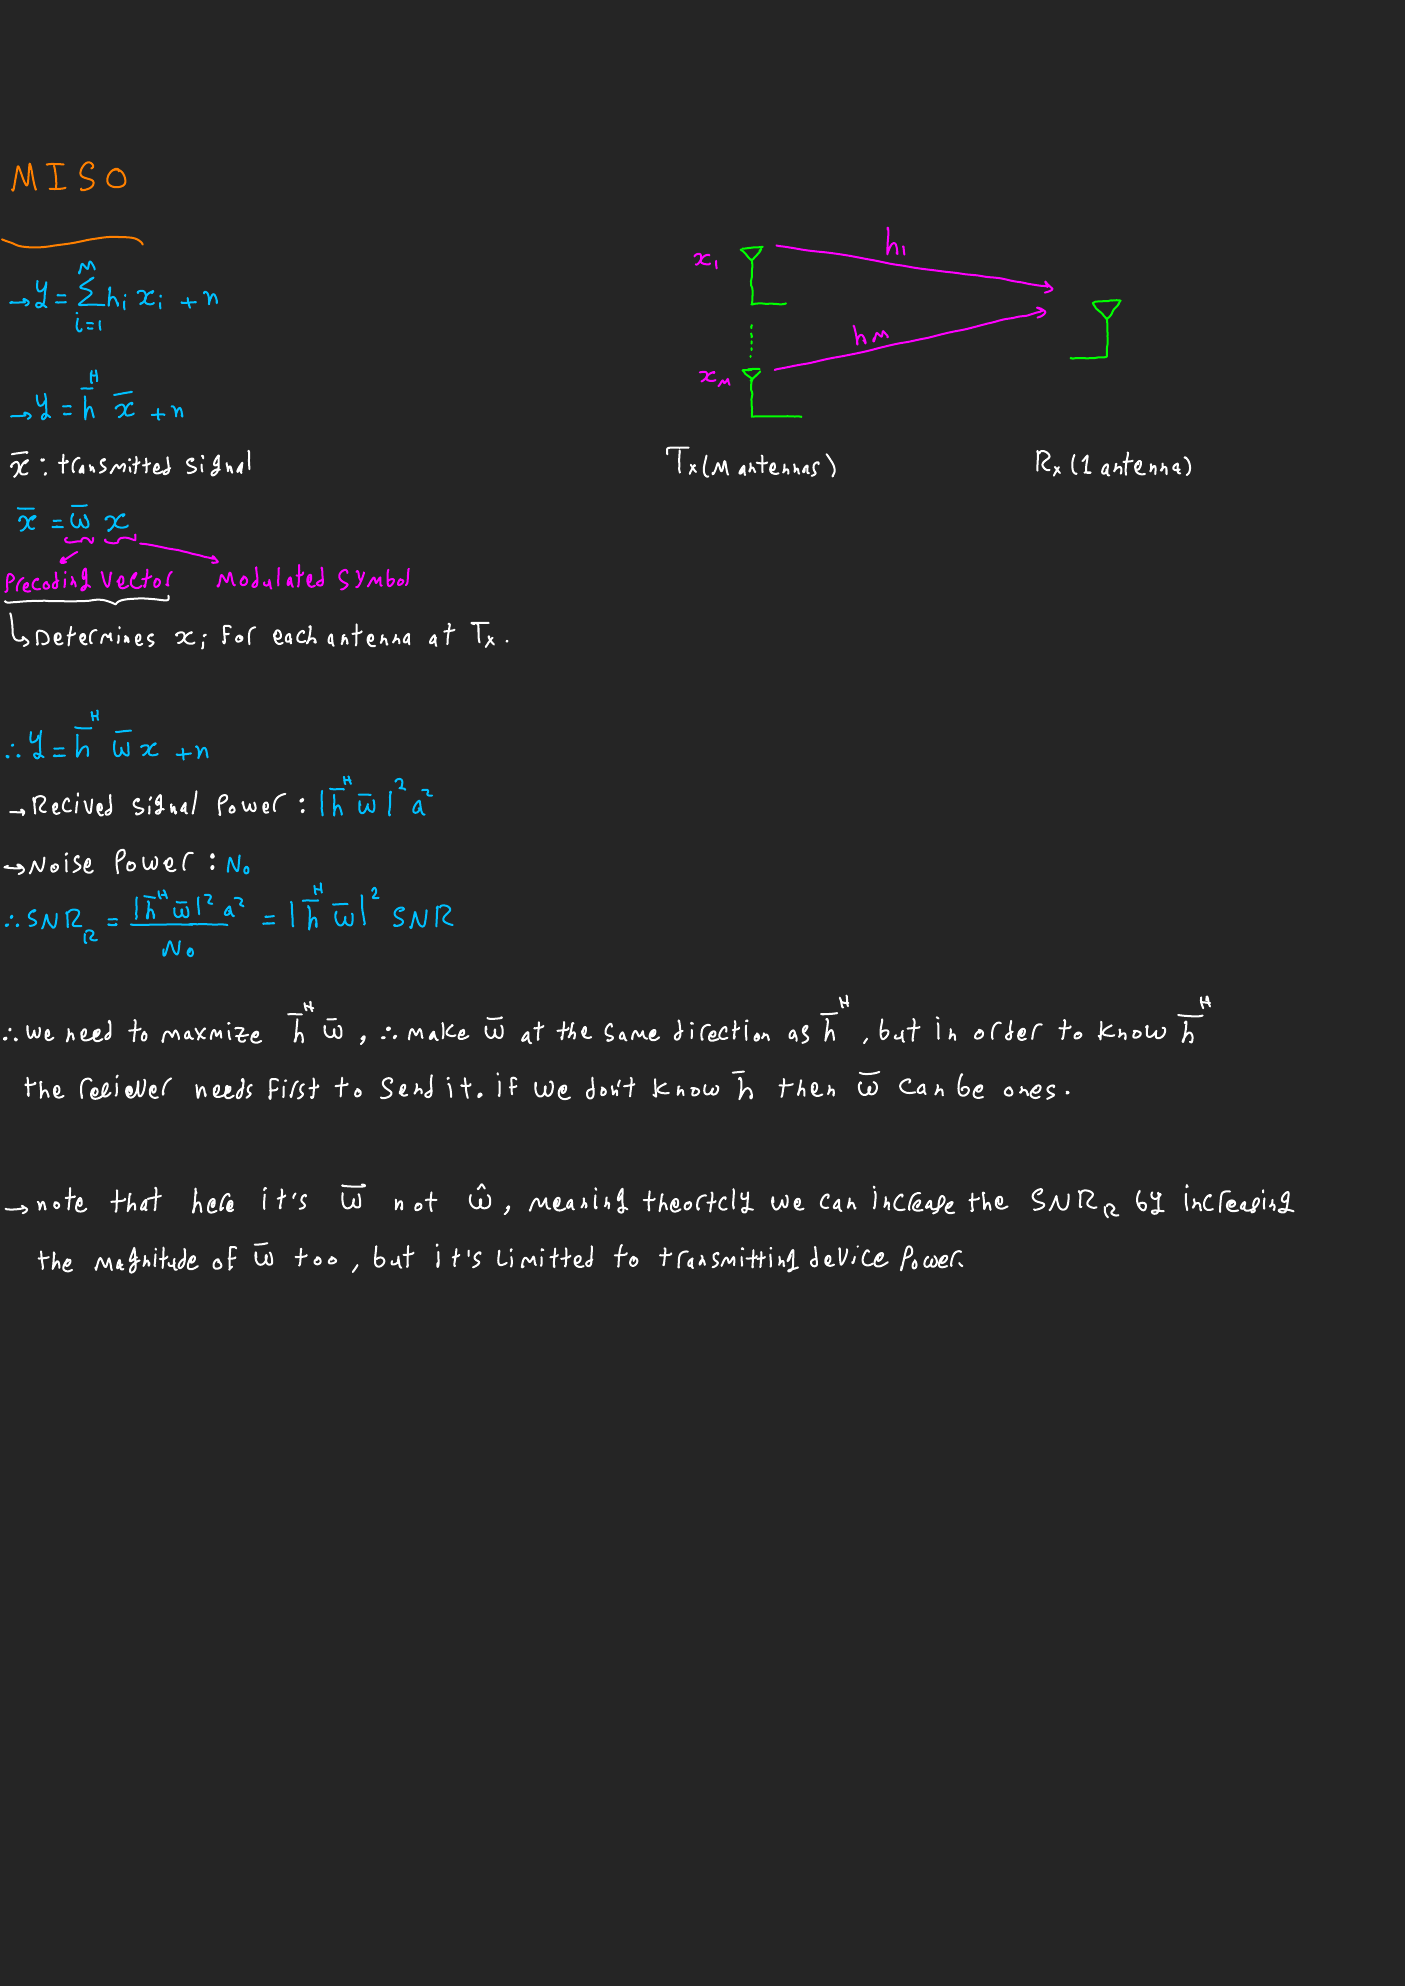 MISO
x₁ h₁
→ y = Σ_{i=1}^{M} hᵢ xᵢ + n
h_M
x_M
→ y = h̄ᴴ x̄ + n
x̄ : transmitted signal
Tx (M antennas) Rx (1 antenna)
x̄ = w̄ x
Precoding Vector Modulated Symbol
↳ Determines xᵢ For each antenna at Tx.
∴ y = h̄ᴴ w̄ x + n
→ Recived signal Power : |h̄ᴴ w̄|² a²
→ Noise Power : N₀
∴ SNR_R = |h̄ᴴ w̄|² a² / N₀ = |h̄ᴴ w̄|² SNR
∴ we need to maxmize h̄ᴴ w̄ , ∴ make w̄ at the same direction as h̄ᴴ , but in order to know h̄ᴴ
the reciever needs First to send it. if we don't know h̄ then w̄ can be ones.
→ note that here it's w̄ not ŵ , meaning theortcly we can increase the SNR_R by increasing
the magnitude of w̄ too , but it's Limitted to transmitting device Power.